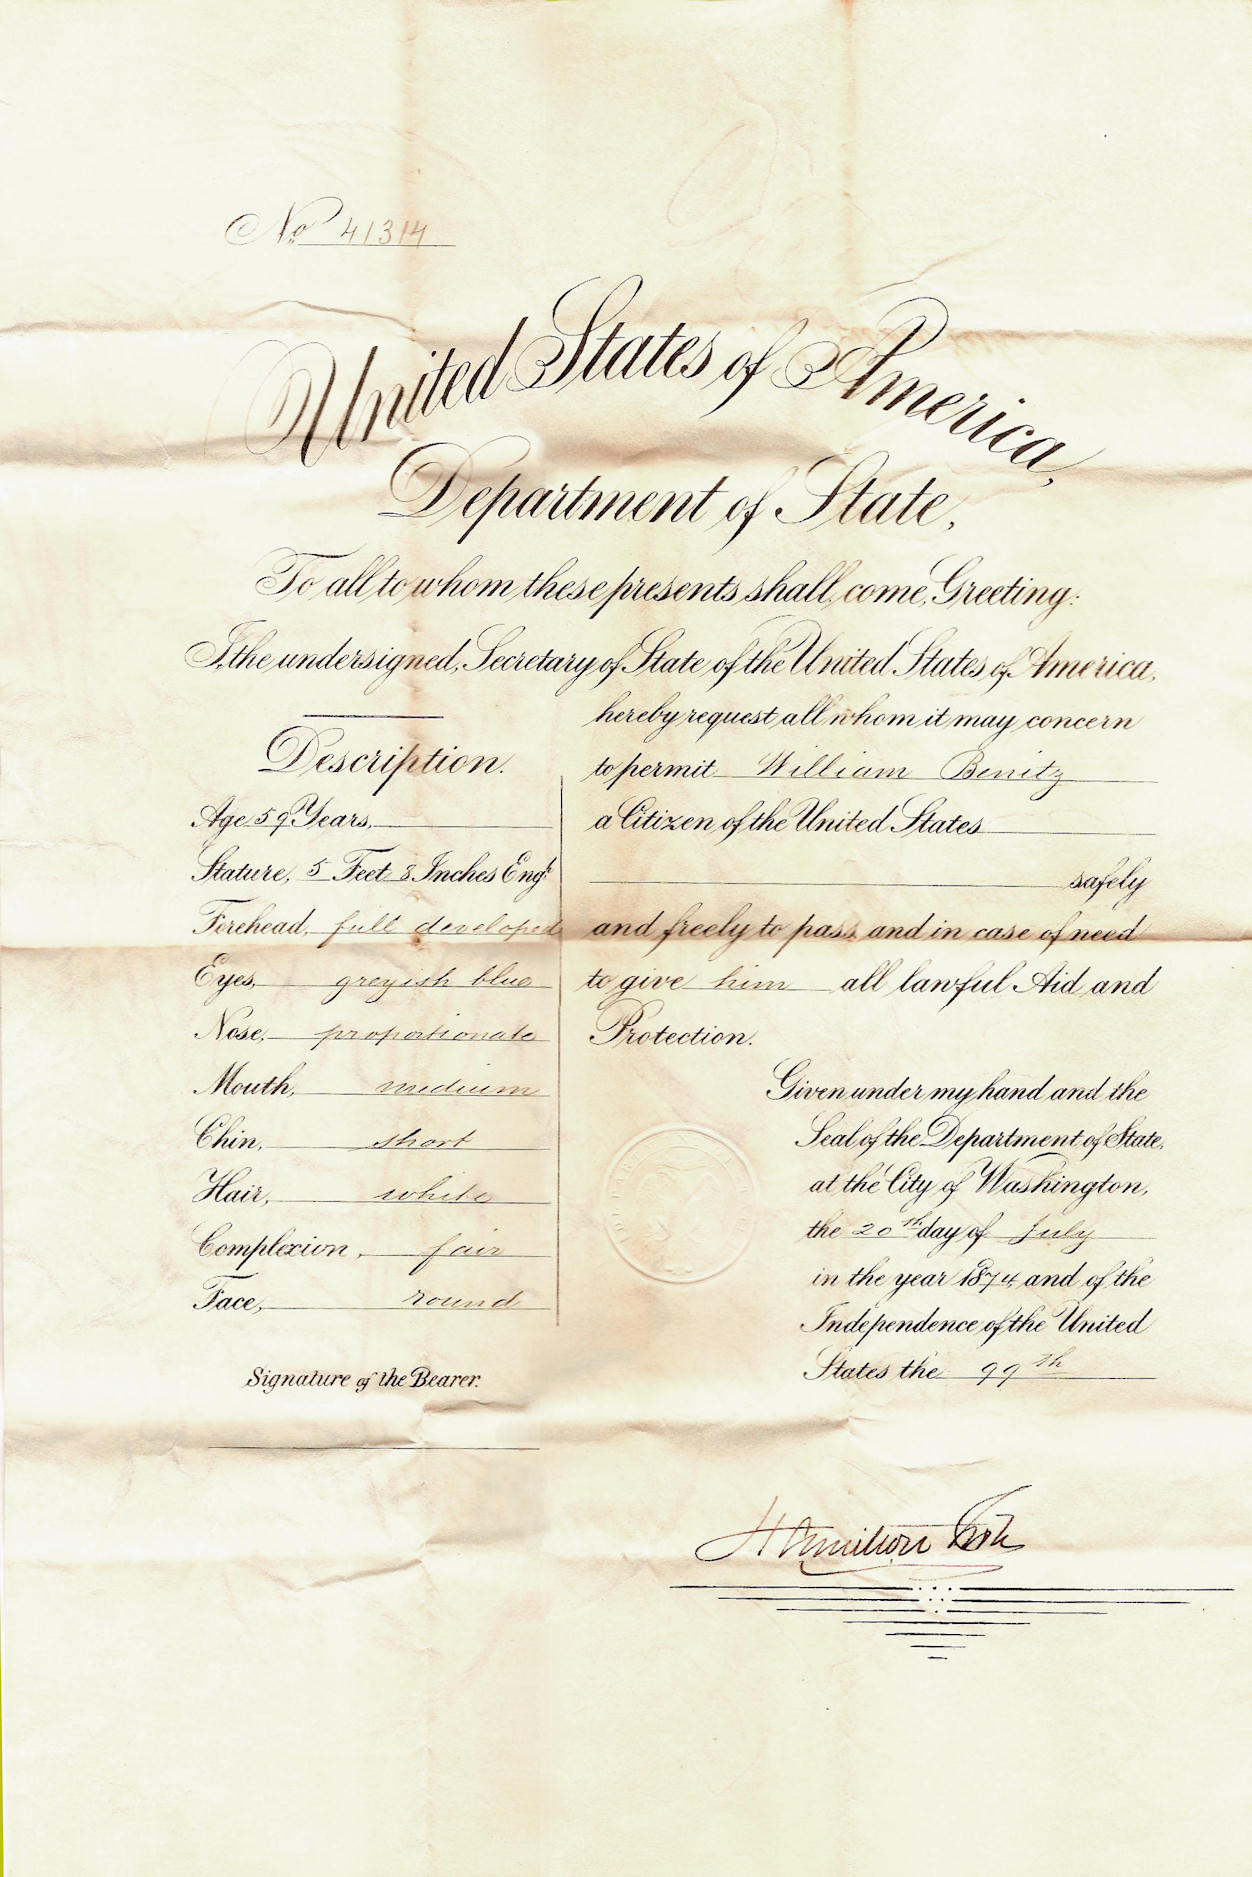 No. 41314
United States of America,
Department of State,
To all to whom these presents shall come, Greeting:
I, the undersigned, Secretary of State of the United States of America,
hereby request all whom it may concern
to permit William Benitz
a Citizen of the United States
safely
and freely to pass and in case of need
to give him all lawful Aid and
Protection.
Description.
Age 59 Years,
Stature, 5 Feet 8 Inches Engl.
Forehead, full developed
Eyes, greyish blue
Nose, proportionate
Mouth, medium
Chin, short
Hair, white
Complexion, fair
Face, round
Signature of the Bearer.
Given under my hand and the
Seal of the Department of State,
at the City of Washington,
the 20th day of July
in the year 1874, and of the
Independence of the United
States the 99th
Hamilton Fish